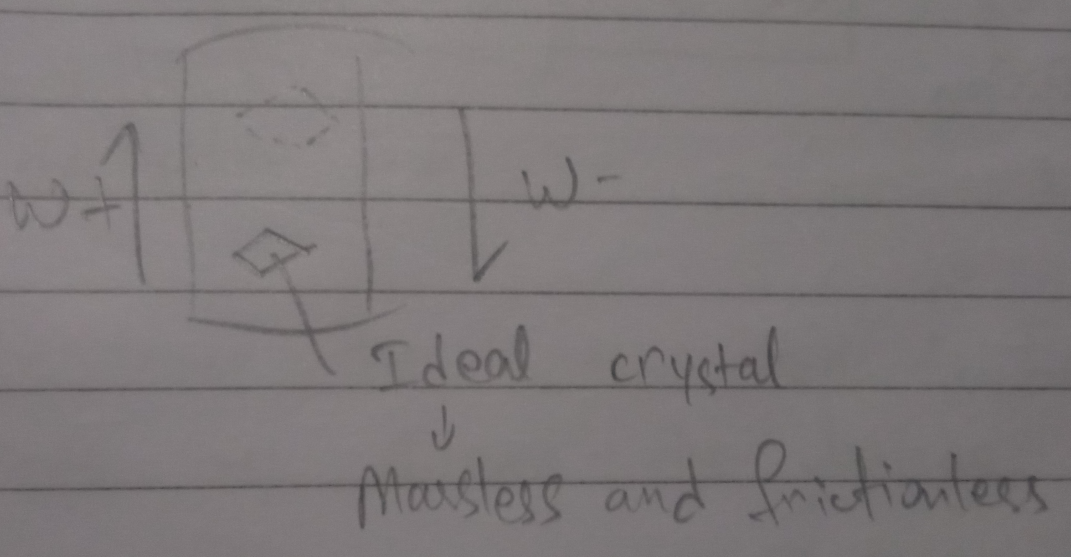 W+
W-
Ideal crystal
↓
Massless and frictionless